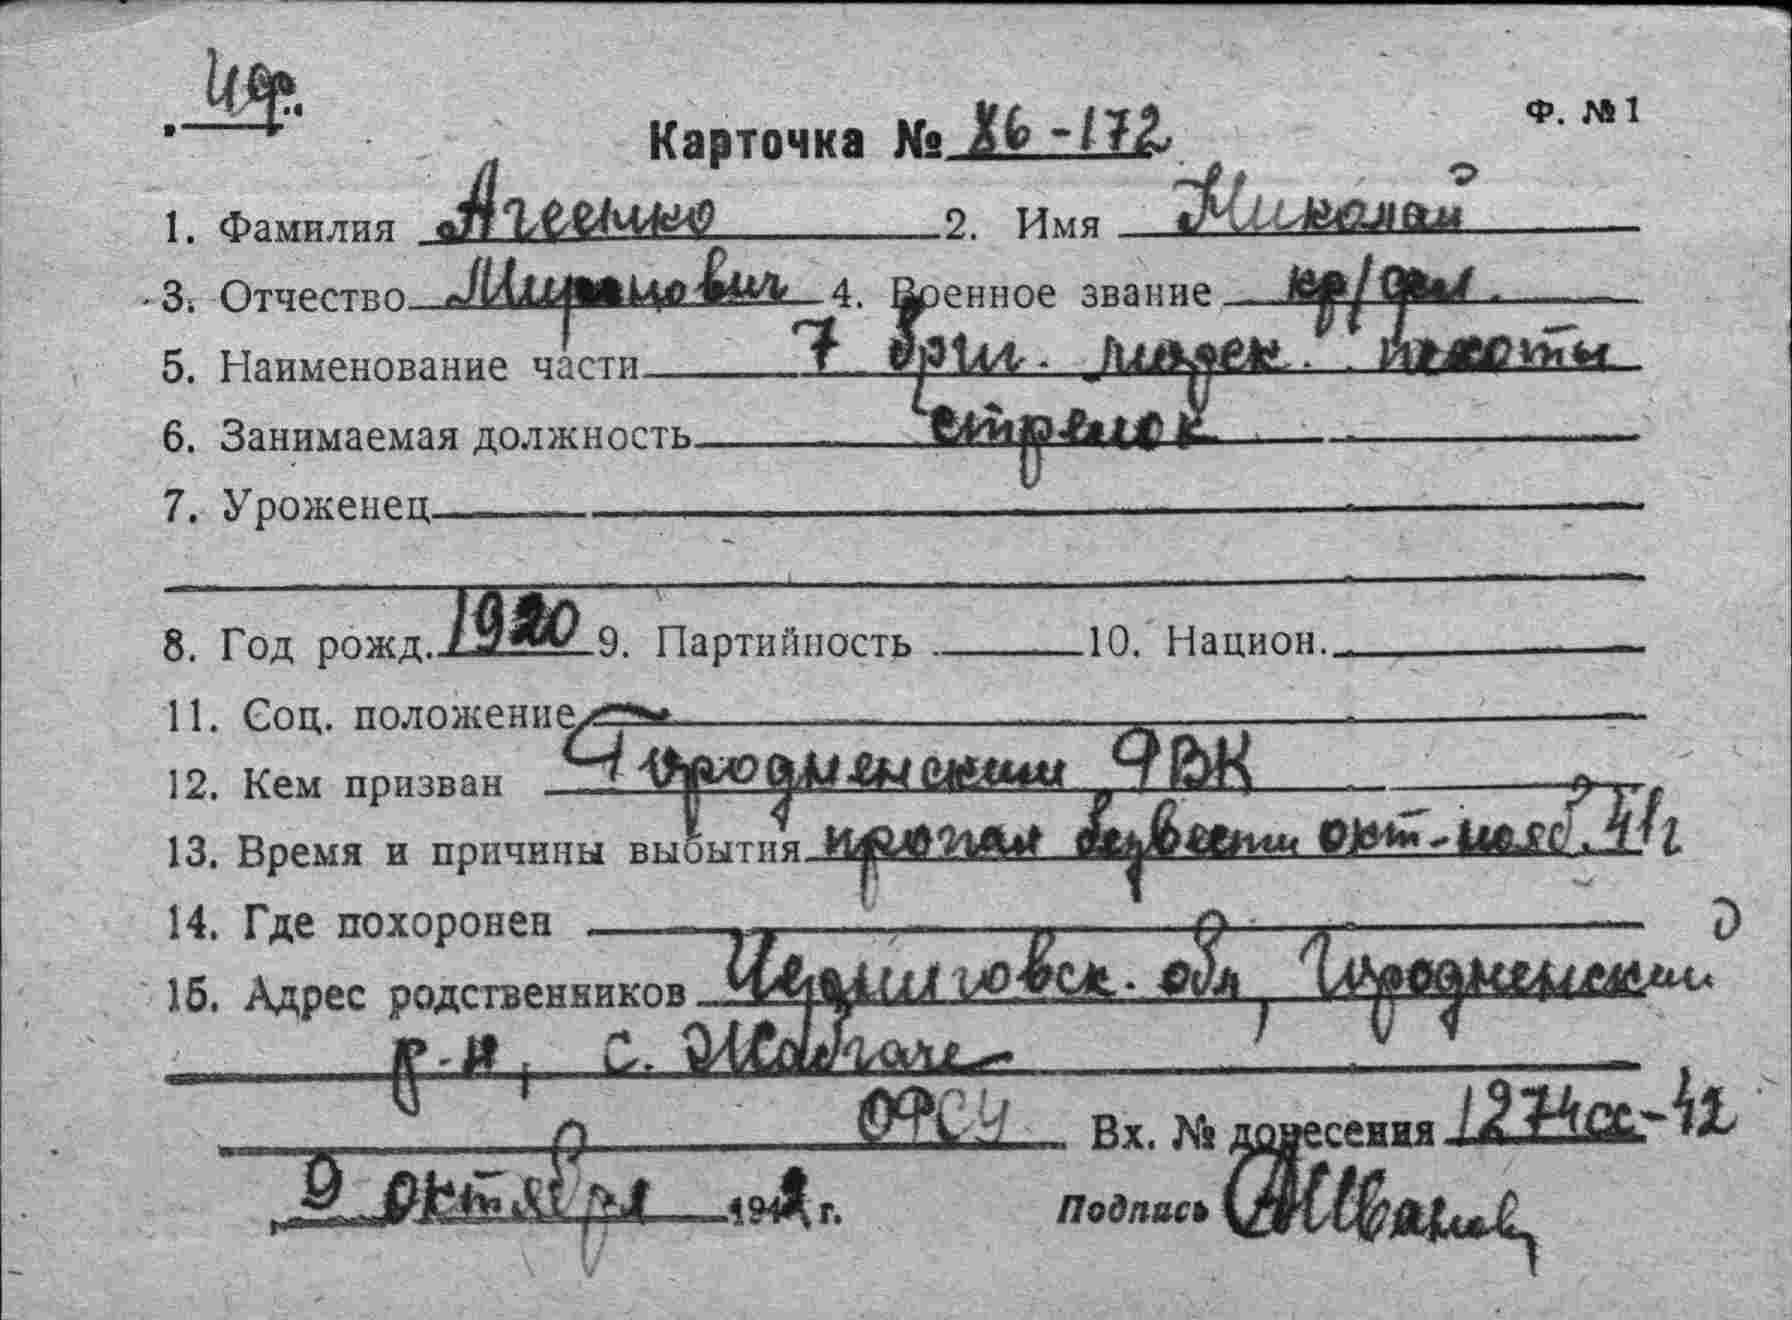 Ф. №1
Карточка № 86-172
1. Фамилия Агеенко 2. Имя Николай
3. Отчество 4. Военное звание кр/фл.
5. Наименование части 7 бриг. морск. пехоты
6. Занимаемая должность стрелок
7. Уроженец
8. Год рожд. 1920 9. Партийность 10. Национ.
11. Соц. положение
12. Кем призван РВК
13. Время и причины выбытия пропал безвести окт-нояб. 41г
14. Где похоронен
15. Адрес родственников Черниговск. обл, Городнянский
р-н, с.
Вх. № донесения 1274сс-42
9 октября 1942 г. Подпись